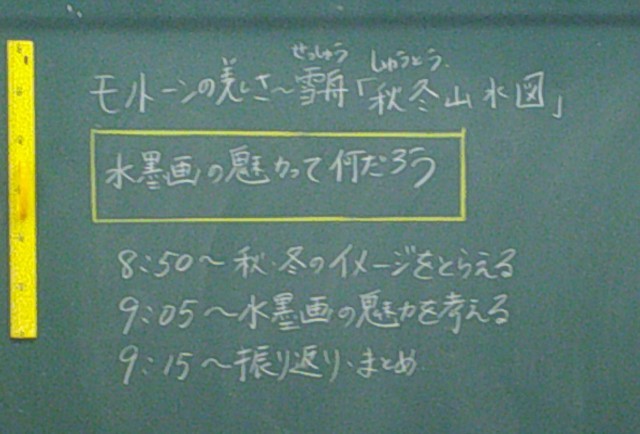 せっしゅう しゅうとう
モノトーンの美しさ〜雪舟「秋冬山水図」
水墨画の魅力って何だろう
8:50〜秋・冬のイメージをとらえる
9:05〜水墨画の魅力を考える
9:15〜振り返り・まとめ